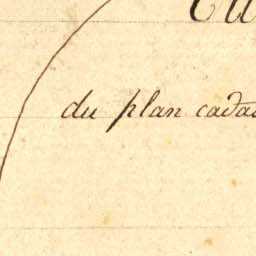 du plan cada